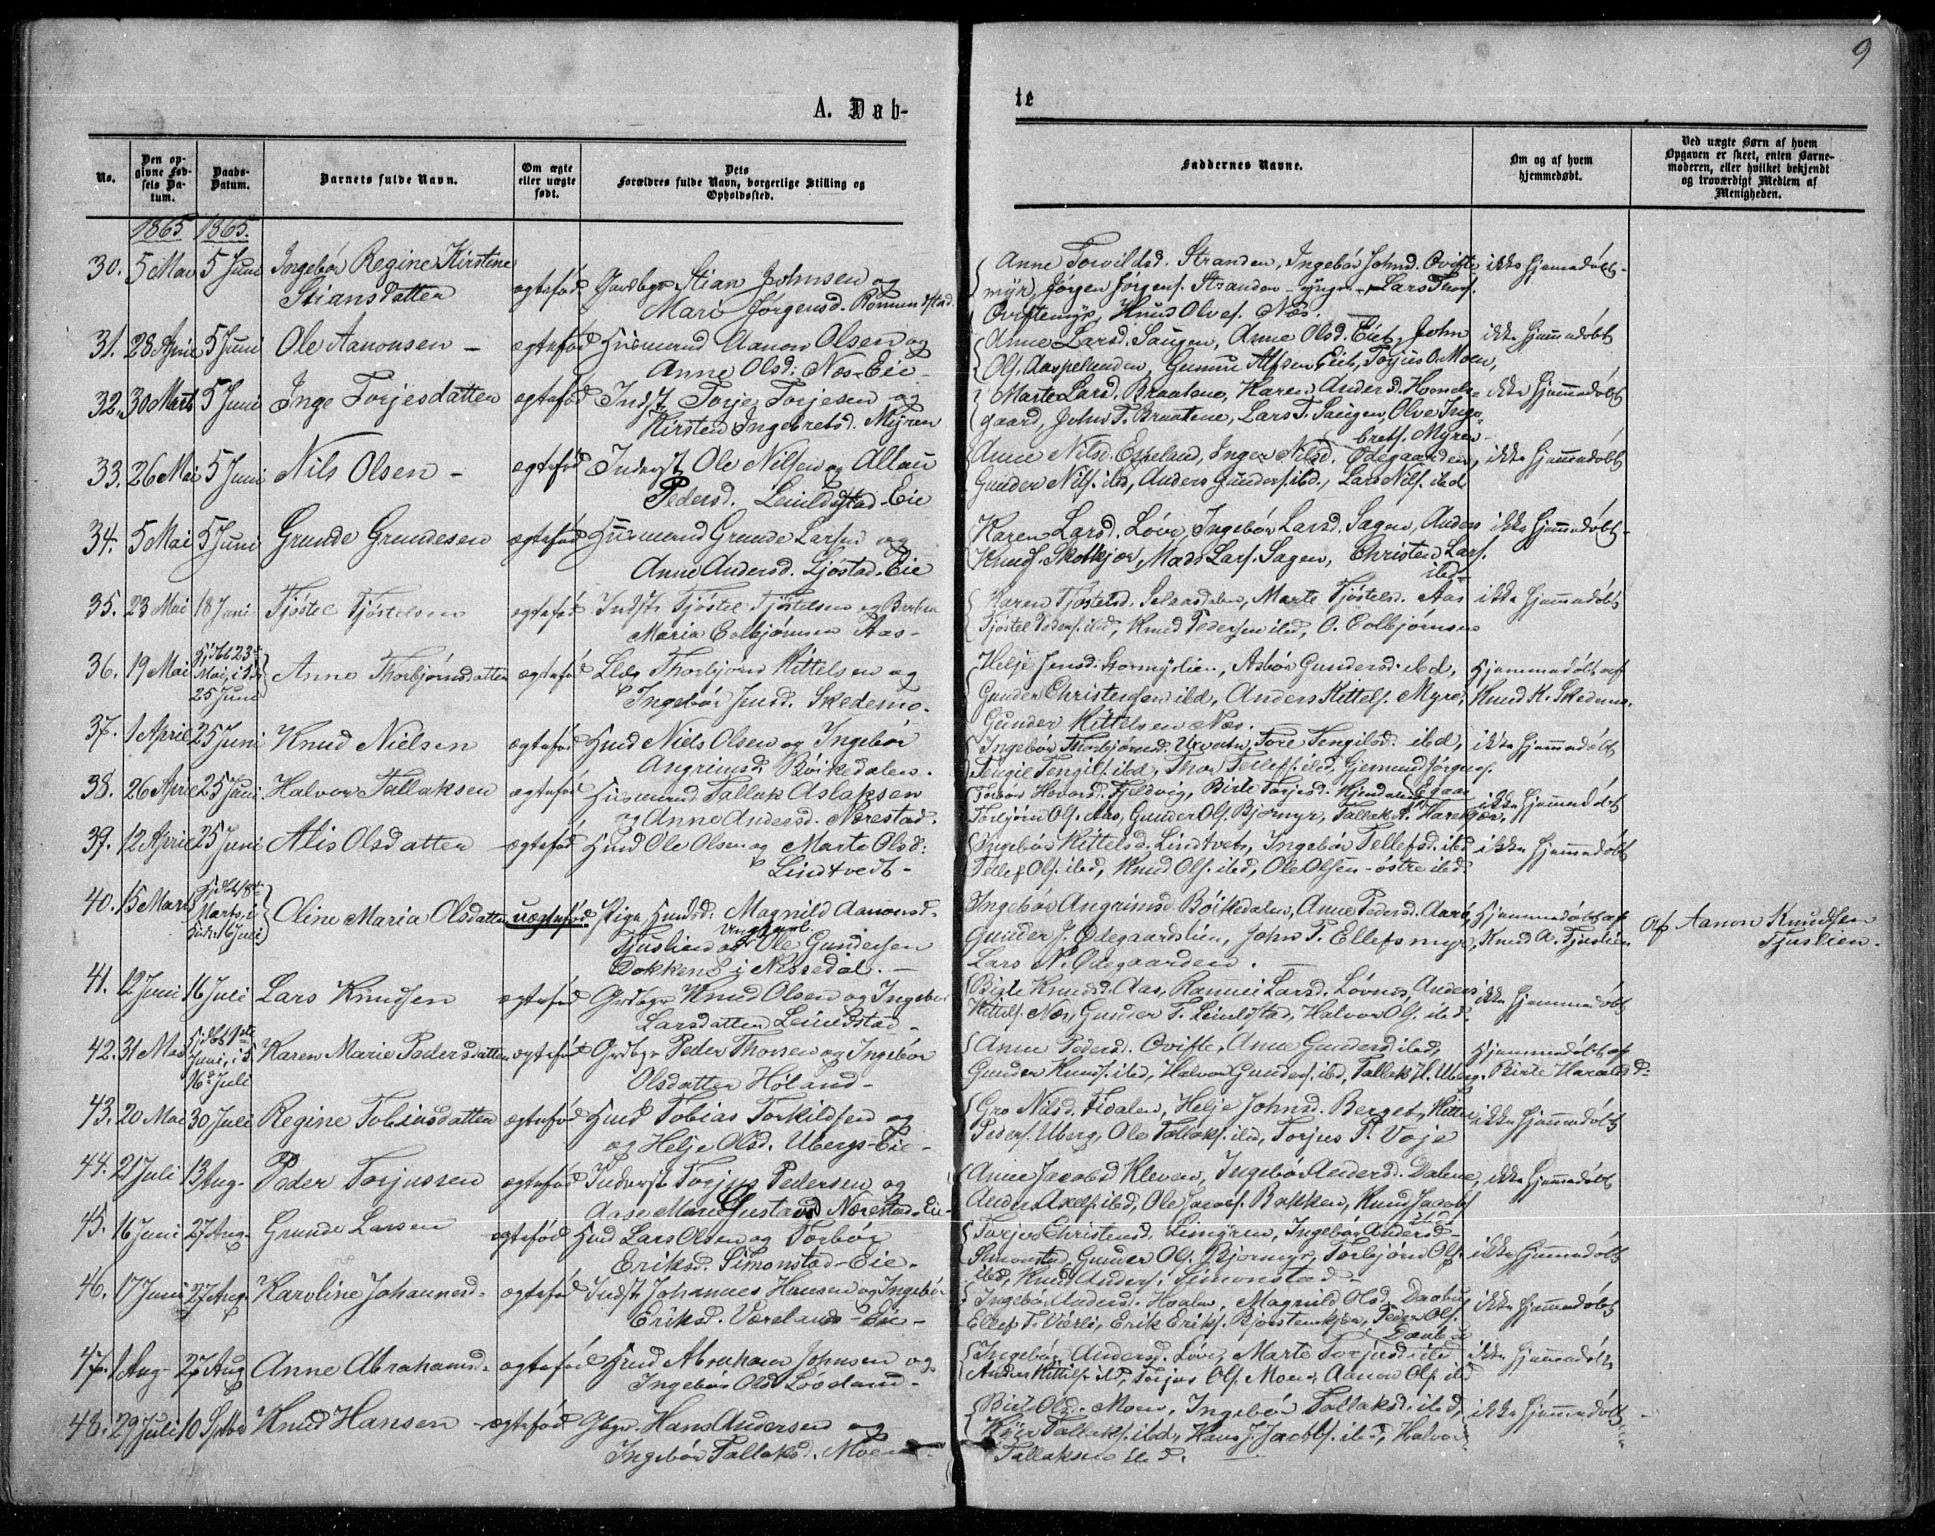 9
A. Døb-
te
No.
Den op-
givne Fød-
sels Da-
tum.
Daabs-
Datum.
Barnets fulde Navn.
Om ægte
eller uægte
født.
Dets
Forældres fulde Navn, borgerlige Stilling og
Opholdssted.
Faddernes Navne.
Om og af hvem
hjemmedøbt.
Ved uægte Børn af hvem
Opgaven er skeet, enten Barne-
moderen, eller hvilket bekjendt
og troværdigt Medlem af
Menigheden.
1865 1865.
30. 5 Mai 5 Juni Ingebór Regine Kirstine
Stiansdatter
ægtefød Gaardbgr Stian Johnsen og
Mari Jørgensd. Rommundstad.
Anne Torvildsd. Stranden, Ingebór Johnsd. Ovifte
myr, Jørgen Jørgens. Stranden yngre, Lars Thos.
Oviftemyr, Knud Olves. Næs.
ikke hjemmedøbt
31. 28 April 5 Juni Ole Aanonsen
ægtefød Huusmand Aanon Olsen og
Anne Olsd. Næs-Eie
Anne Larsd. Saugen, Anne Olsd. Eiet, John
Ols. Aaspehenden, Gunnu Alfsen Eiet, Torjus O. Moen,
ikke hjemmedøbt
32. 30 Marts 5 Juni Inge Torjesdatter
ægtefød Indst Torje Torjesen og
Kirsten Ingebretsd. Myren
Marte Larsd. Braatene, Karen Andersd. Homele-
gaard, John T. Braatene, Lars T. Saugen, Olve Inge-
brets. Myren
ikke hjemmedøbt
33. 26 Mai 5 Juni Nils Olsen
ægtefød Inderst Ole Nilsen og Allau
Pedersd. Leiuldstad-Eie
Anne Nilsd. Espelund, Inger Nilsd. Ødegaarden,
Gunder Nils. ibd, Anders Gunders. ibd., Lars Nils. ibd
ikke hjemmedøbt
34. 5 Mai 5 Juni Grunde Grundesen
ægtefød Huusmand Grunde Larsen og
Anne Andersd. Sjøstad-Eie
Karen Larsd. Løve, Ingebór Larsd. Sagen, Anders
Knuds. Skotkjær, Mads Lars. Sagen, Christen Lars.
ibd
ikke hjemmedøbt
35. 23 Mai 18 Juni Tjøstel Tjøstelsen
ægtefød Indst Tjøstel Tjøstelsen og Barbra
Maria Colbjørnsen Aas-
Karen Tjøstelsd. Selaasdalen, Marte Tjøstelsd. Aas
Tjøstel Peders. ibd, Knud Pedersen ibd, O. Colbjørnsen
ikke hjemmedøbt
36. 19 Mai Hjdbt 23de
Mai, i K.
25 Juni
Anne Thorbjørnsdatter
ægtefød Thorbjørn Kittelsen og
Ingebór Jensd. Skedsmo.
Helje Jensd. Stormyrlien, Asbór Gundersd. ibd,
Gunder Christensen ibd, Anders Kittels. Myre,
Gunder Kittelsen Næs.
Hjemmedøbt af
Knud K. Skedsmo.
37. 1 April 25 Juni Knud Nielsen
ægtefød Huusd Niels Olsen og Ingebór
Angrimsd. Bøikedalen.
Ingebór Thorbjørnsd. Urvatn, Tore Tengilsd. ibd,
Tengil Tengils. ibd, Thor Tellefs. ibd, Gjermund Jørgens.
Egaas
ikke hjemmedøbt
38. 26 April 25 Juni Halvor Tallaksen
ægtefød Huusmand Tallak Aslaksen
og Anne Andersd. Nærestad.
Torbór Hovorsd. Fjeldvig, Birte Torjesd. Hjendalen
Torbjørn Ols. Aas, Gunder Ols. Bjørmyr, Tallak A. Harekjær.
ikke hjemmedøbt
39. 12 April 25 Juni Alis Olsdatter
ægtefød Huusd Ole Olsen og Marte Olsd.
Lindtvedt-
Ingebór Kittelsd. Lindtvet, Ingebór Tellefsd. ibd
Tellef Ols. ibd, Knud Ols. ibd, Ole Olsen-østre ibd.
ikke hjemmedøbt
40. 15 Marts Hjdbt 18de
Marts, i
Kirk. 16 Juli
Oline Maria Olsdatter
uægtefød Pige Magnild Aanonsd.
Tjuslien og Ungkarl Ole Gundersen
Dokkene i Nissedal.
Ingebór Angrimsd. Bøikedalen, Anne Pedersd. Aarø,
Gunder J. Ødegaardslien, John T. Ellefsmyr,
Lars N. Ødegaarden.
Hjemmedøbt af
Knud A. Tjuslien
af Aanon Knudsen
Tjuslien.
41. 12 Juni 16 Juli Lars Knudsen
ægtefød Grdbgr Knud Olsen og Ingebór
Larsdatter Leiuldstad
Birte Knudsd. Aas, Rannei Larsd. Løvnes, Anders
Kittels. Næs, Gunder T. Leiuldstad, Halvor Ols. ibd.
ikke hjemmedøbt
42. 31 Mai Hjdbt 1ste
Juni, i K
16de Juli
Karen Marie Pedersdatter
ægtefød Grdbgr Peder Thorsen og Ingebór
Olsdatter Høland-
Anne Pedersd. Ovifte, Anne Gundersd. ibd,
Gunder Knuds. ibd, Halvor Gunders. ibd, Tallak H. Uberg.
Hjemmedøbt af
Birte Haraldsd-
43. 20 Mai 30 Juli Regine Tobiasdatter
ægtefød Huusd Tobias Torkildsen og
og Helje Olsd. Ubergs-Eie-
Gro Nilsd. Fidalen, Helje Johnsd. Berget, Kittel
Peders. Uberg, Ole Tallaks. ibd, Torjus P. Voje
ikke hjemmedøbt
44. 21 Juli 13 Aug. Peder Torjussen
ægtefød Inderst Torjus Pedersen og
Anne Marie Gustavsd Nærestad-Eie
Anne Jacobsd Kleven, Ingebór Andersd. Dalene,
Anders Axels. ibd, Ole Jacobs. Bakken, Knud Jacobs
ibd
ikke hjemmedøbt
45. 16 Juni 27 Aug. Grunde Larsen
ægtefød Huusd Lars Olsen og Torbór
Eriksd. Simonstad-Eie-
Torjer Christensd. Limyren, Ingebór Andersd-
Simonstad, Gunder Ols. Bjørmyr, Torbjørn Ols.
ibd, Knud Anders. Simonstad-
ikke hjemmedøbt
46. 17 Juni 27 Aug. Karoline Johannesd.
ægtefød Indst Johannes Hansen og Ingebór
Eriksd. Værelands-Eie-
Ingebór Andersd. Hoalen, Magnild Olsd. Daabu,
Ellef T. Vierli, Erik Eriks. Bjørstenskjær, Peder Ols.
Daabu
ikke hjemmedøbt
47. 1 Aug- 27 Aug Anne Abrahamsd.
ægtefød Huusd Abraham Johnsen og
Ingebór Olsd Løvland-
Ingebór Andersd. Løve, Marte Torjusd. ibd.
Anders Kittils. ibd, Torjus Ols. Moen, Aanon Ols. ibd
ikke hjemmedøbt
48. 29 Juli 10 Septbr Knud Hansen
ægtefød Gbgr. Hans Andersen og
Ingebór Tallaksd. Moen
Birt Olsd. Moen, Ingebór Tallaksd. ibd,
Tallaks. ibd, Hans J. Jacobs. ibd, Halvor
Tallaksen ibd.
ikke hjemmedøbt